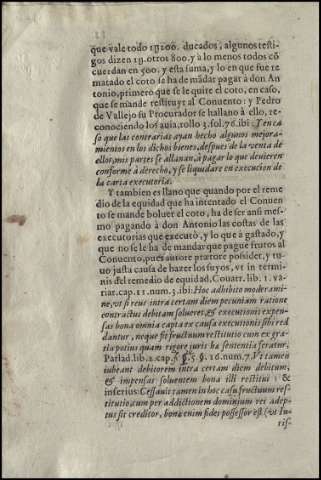 que vale todo 1y200. ducados, algunos testi-
gos dizen 1y. otros 800. y a lo menos todos cõ
cuerdan en 500. y esta suma, y lo en que fue re
matado el coto se ha de mãdar pagar à don An-
tonio, primero que se le quite el coto, en caso,
que se mande restituyr al Conuento: y Pedro
de Vallejo su Procurador se hallanò à ello, re-
conociendo los auia, rollo 3. fol. 76. ibi: Y en ca
so que las contrarias ayan hecho algunos mejora-
mientos en los dichos bienes, despues de la venta de
ellos, mis partes se allanan, à pagar lo que deuieren
conforme à derecho, y se liquidare en execucion de
la carta executoria.
Y tambien es llano que quando por el reme
dio de la equidad que ha intentado el Conuen
to se mande boluer el coto, ha de ser ansi mes-
mo pagando à don Antonio las costas de las
executorias que executò, y lo que à gastado, y
que no se le ha de mandar que pague frutos al
Conuento, pues autore prætore possidet, y tu-
uo justa causa de hazer los suyos, vt in termi-
nis del remedio de equidad, Couarr. lib. 1. va-
riar. cap. 11. num. 3. ibi: Hoc adhibito moderami-
ne, vt si reus intra certam diem pecuniam ratione
contractus debitam solueret, & executionis expen-
sas bona omnia capta ex causa executionis sibi red
dantur, neque fit fructuum restitutio cum ex gra-
tia potius quam rigore juris hæ sententiæ feratur,
Parlad. lib. 2. cap. §. 5. §. 16. num. 7. Vt tamen
iubeant debitorem intra certam diem debitum,
& impensas soluentem bona illi restitui: &
inferius: Cessauit tamen in hoc casu fructuum res-
titutio, cum per addictionem dominium rei adep-
tus sit creditor, bonæ enim fidei possessor est (vt Iu-
ris-